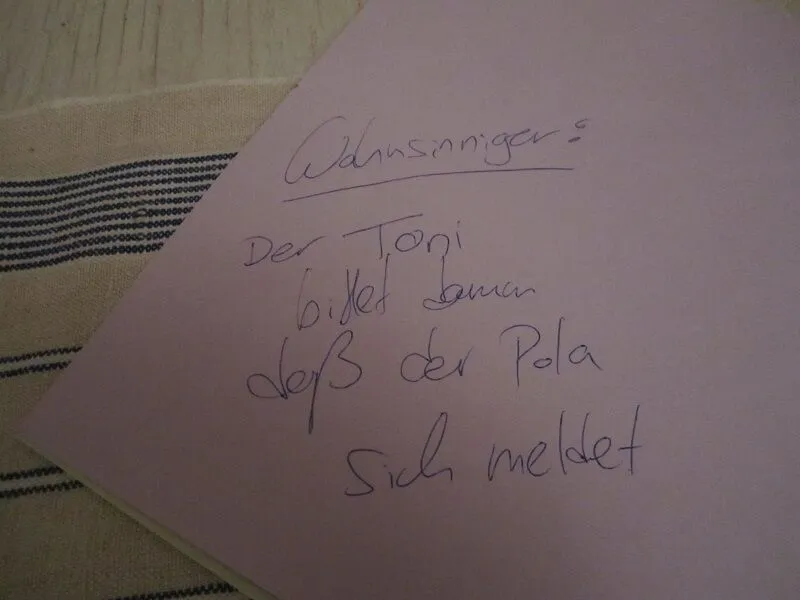 Wahnsinniger:
Der Toni
bittet
daß der Pola
sich meldet